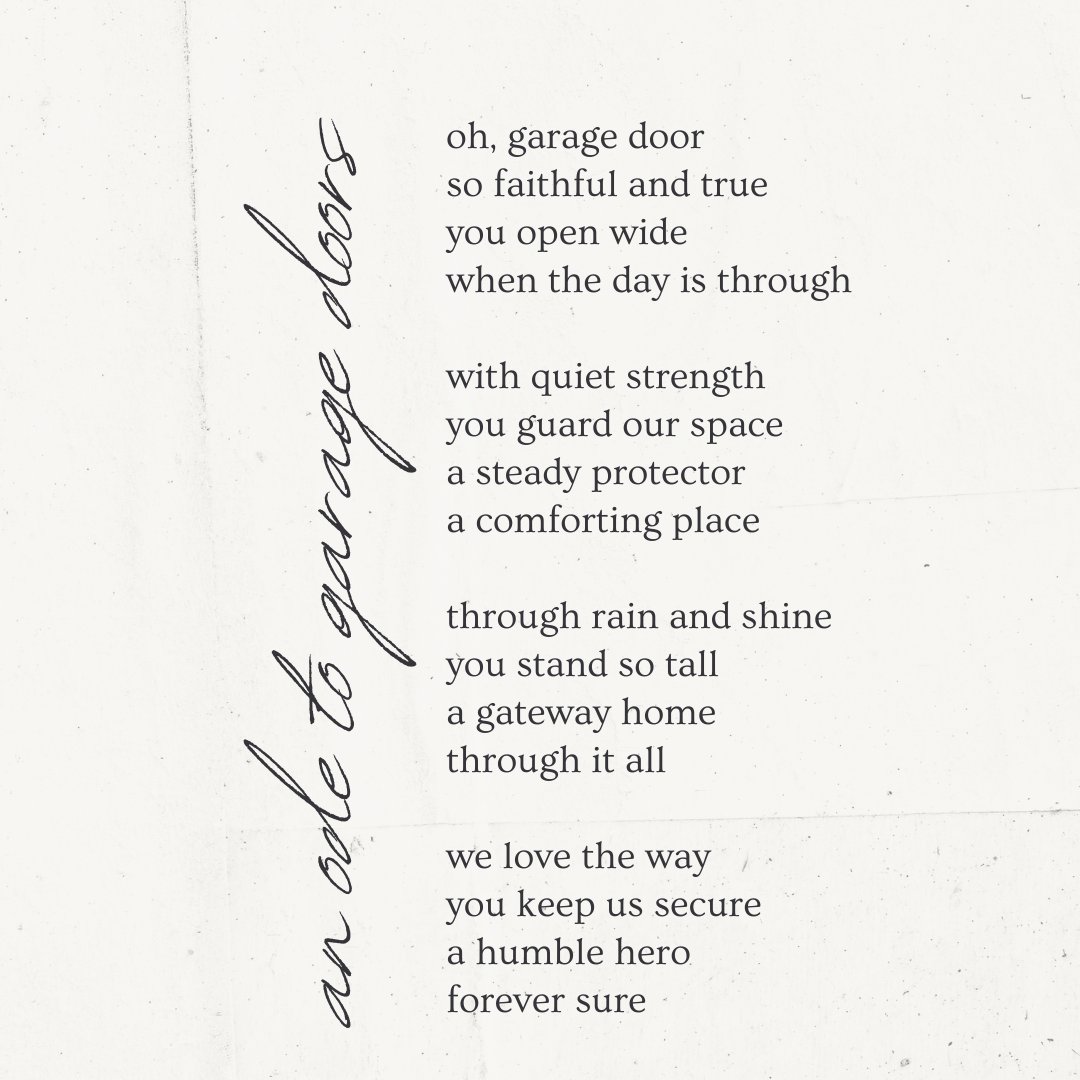 an ode to garage doors
oh, garage door
so faithful and true
you open wide
when the day is through
with quiet strength
you guard our space
a steady protector
a comforting place
through rain and shine
you stand so tall
a gateway home
through it all
we love the way
you keep us secure
a humble hero
forever sure